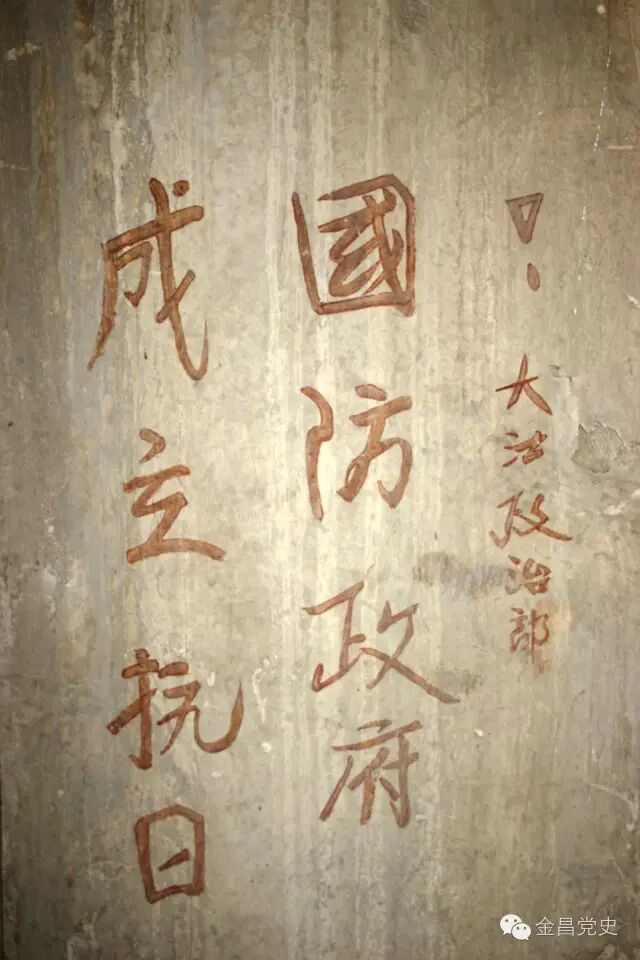 成立抗日
國防政府
!
大 政治部
金昌党史